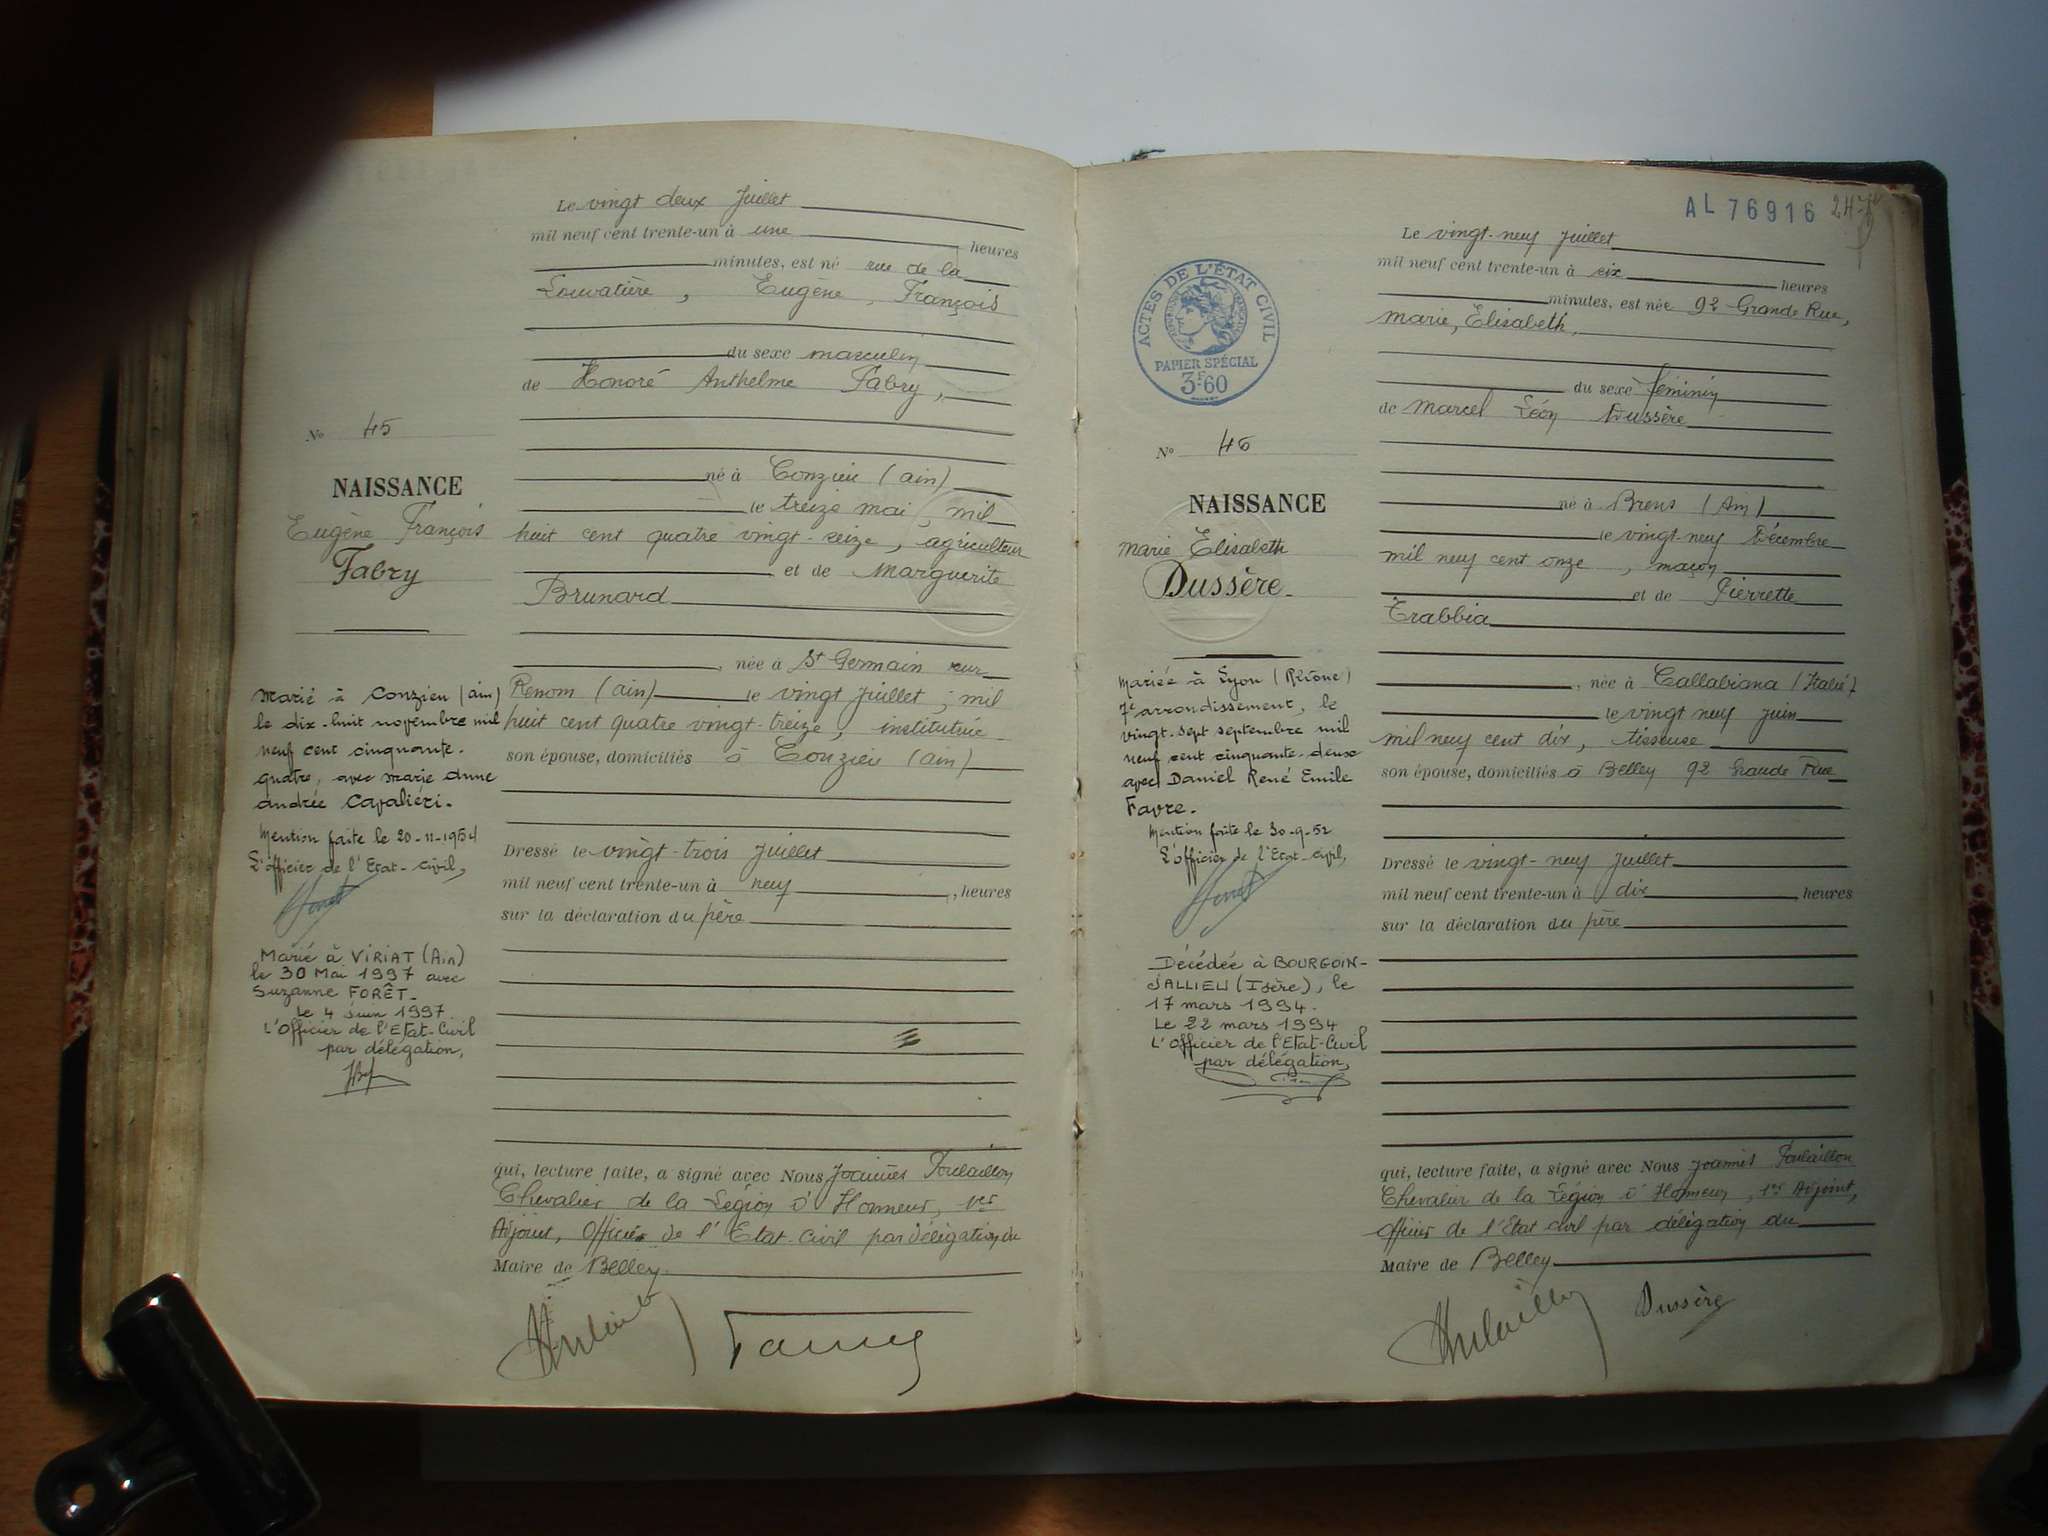 Le vingt deux Juillet
mil neuf cent trente-un à une heures
minutes, est né rue de la
Louvatière, Eugène, François
du sexe masculin
de Honoré Anthelme Fabry,
né à Conzieu (ain)
le treize mai, mil
huit cent quatre vingt-seize, agriculteur
et de Marguerite
Brunard
, née à St Germain sur
Renom (ain) le vingt juillet, mil
huit cent quatre vingt-treize, institutrice
son épouse, domiciliés à Conzieu (ain)
Dressé le vingt-trois Juillet
mil neuf cent trente-un à neuf, heures
sur la déclaration du père
qui, lecture faite, a signé avec Nous Joannès Poulaillon
Chevalier de la Légion d'Honneur, 1er
Adjoint, Officier de l'Etat-civil par délégation du
Maire de Belley.
No 45
NAISSANCE
Eugène François
Fabry
Marié à Conzieu (ain)
le dix-huit novembre mil
neuf cent cinquante-
quatre, avec Marie Anne
andrée Cavaliéri.
Mention faite le 20-11-1954
L'officier de l'Etat-civil,
Marié à VIRIAT (Ain)
le 30 Mai 1997 avec
Suzanne FORÊT.
Le 4 juin 1997
L'Officier de l'Etat-Civil
par délégation,
AL 76916
Le vingt-neuf Juillet
mil neuf cent trente-un à six heures
minutes, est née 92 Grande Rue,
Marie, Elisabeth,
du sexe féminin
de Marcel Léon Dussère
né à Brens (Ain)
le vingt-neuf Décembre
mil neuf cent onze, maçon
et de Pierrette
Trabbia
, née à Callabiana (Italie)
le vingt neuf juin
mil neuf cent dix, tisseuse
son épouse, domiciliés à Belley 92 Grande Rue
Dressé le vingt-neuf Juillet
mil neuf cent trente-un à dix heures
sur la déclaration du père
qui, lecture faite, a signé avec Nous Joannès Poulaillon
Chevalier de la Légion d'Honneur, 1er Adjoint,
Officier de l'Etat civil par délégation du
Maire de Belley
Dussère
ACTES DE L'ÉTAT CIVIL
PAPIER SPÉCIAL
3F60
No 46
NAISSANCE
Marie Elisabeth
Dussère
Mariée à Lyon (Rhône)
7e arrondissement, le
vingt-sept septembre mil
neuf cent cinquante-deux
avec Daniel René Emile
Favre.
Mention faite le 30-9-52
L'officier de l'Etat-civil,
Décédée à BOURGOIN-
JALLIEU (Isère), le
17 mars 1994.
Le 22 mars 1994
L'Officier de l'Etat-Civil
par délégation,